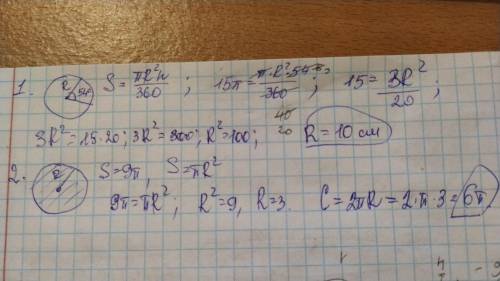 1. R 54° S = πR²n/360 ; 15π = π·R²·54/360 ; 15 = 3R²/20 ;
40
20
3R² = 15·20; 3R² = 300; R² = 100; R = 10 см
2. S = 9π, S = πR²
9π = πR²; R² = 9, R = 3. C = 2πR = 2·π·3 = 6π